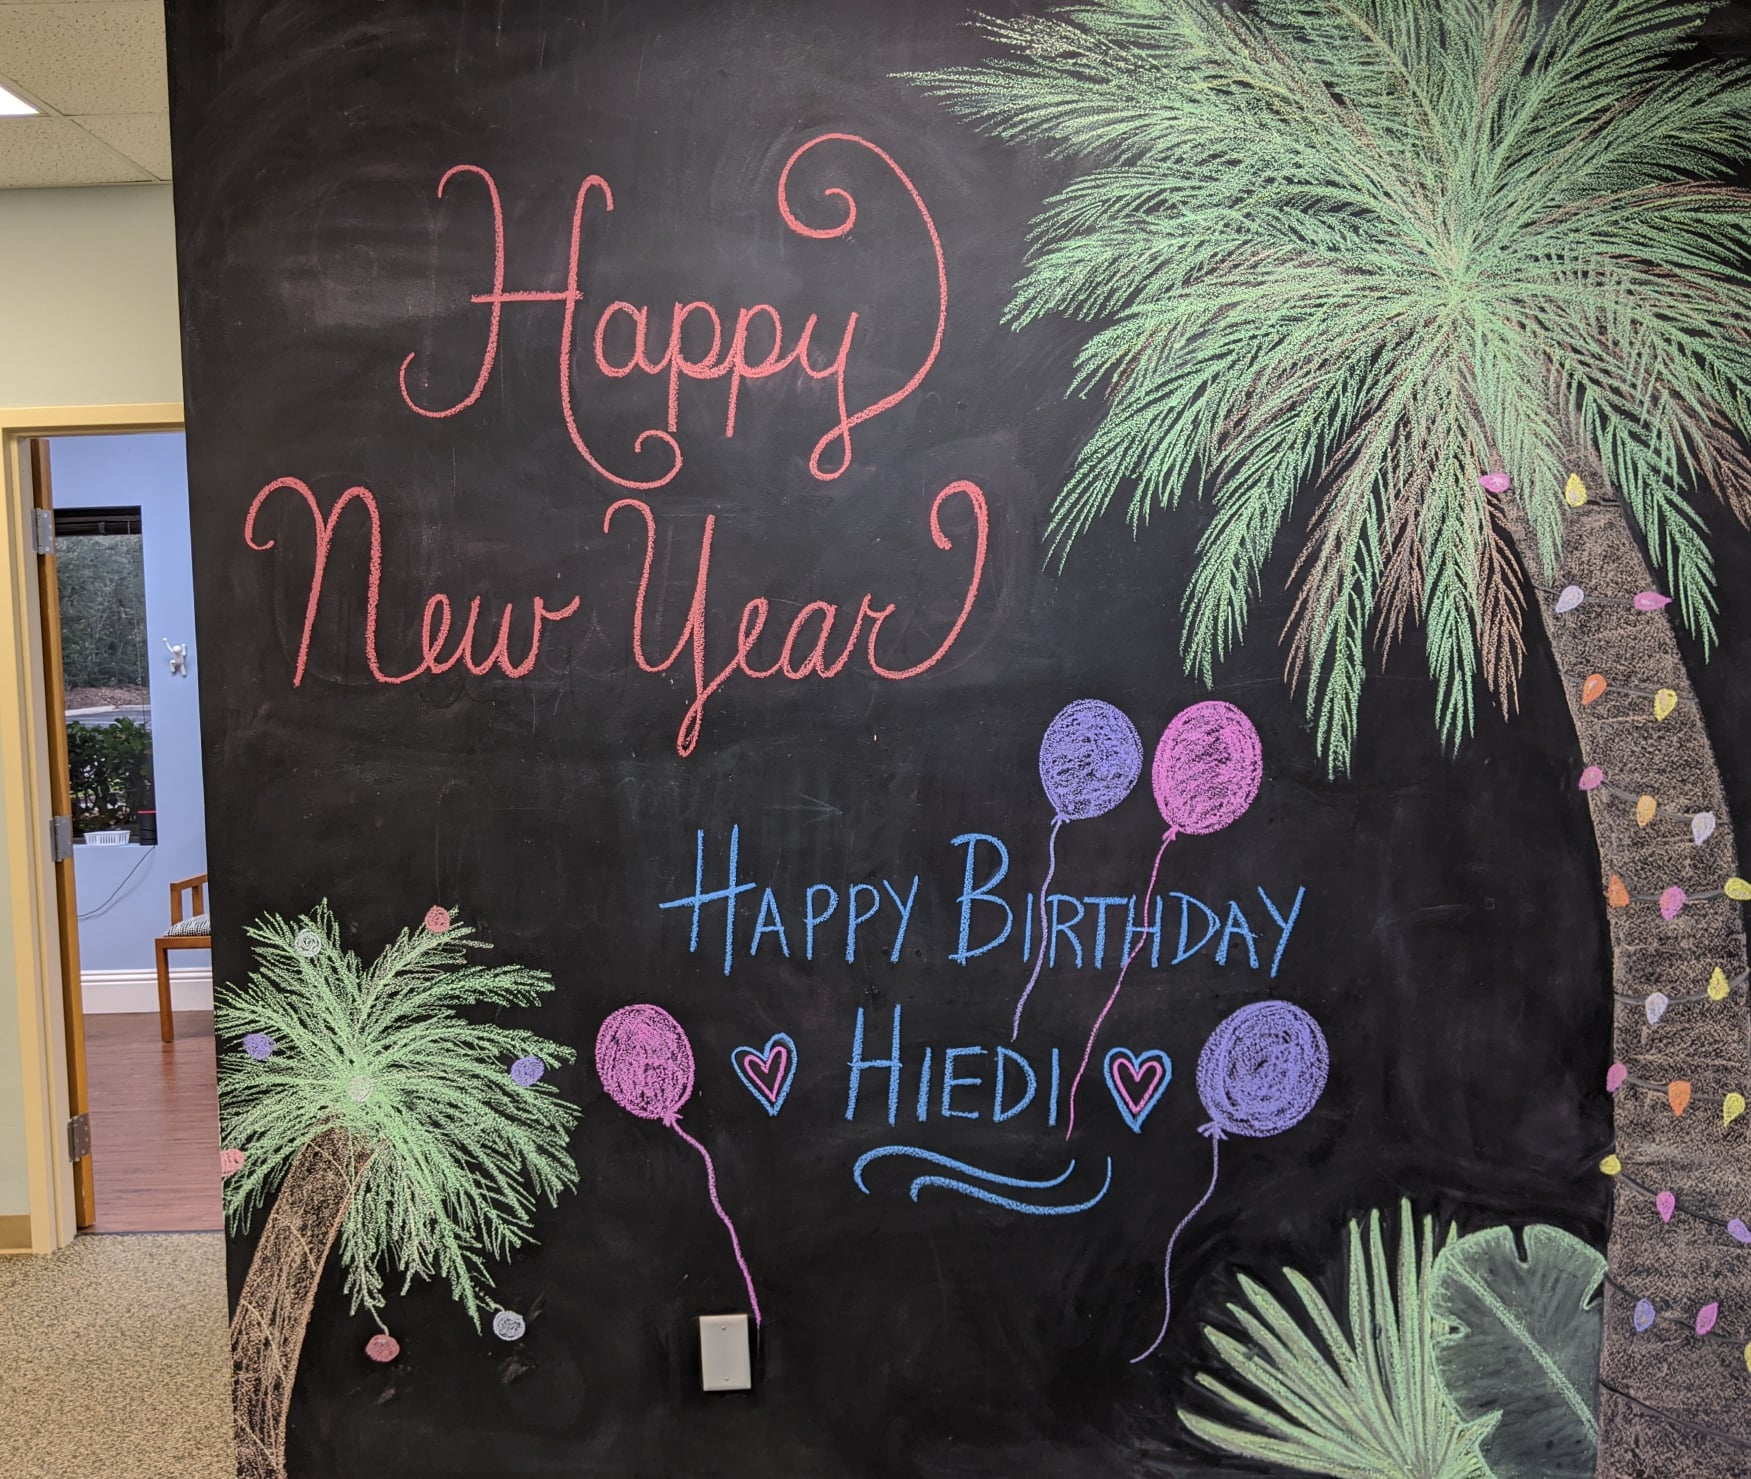 Happy
New Year
HAPPY BIRTHDAY
HIEDI